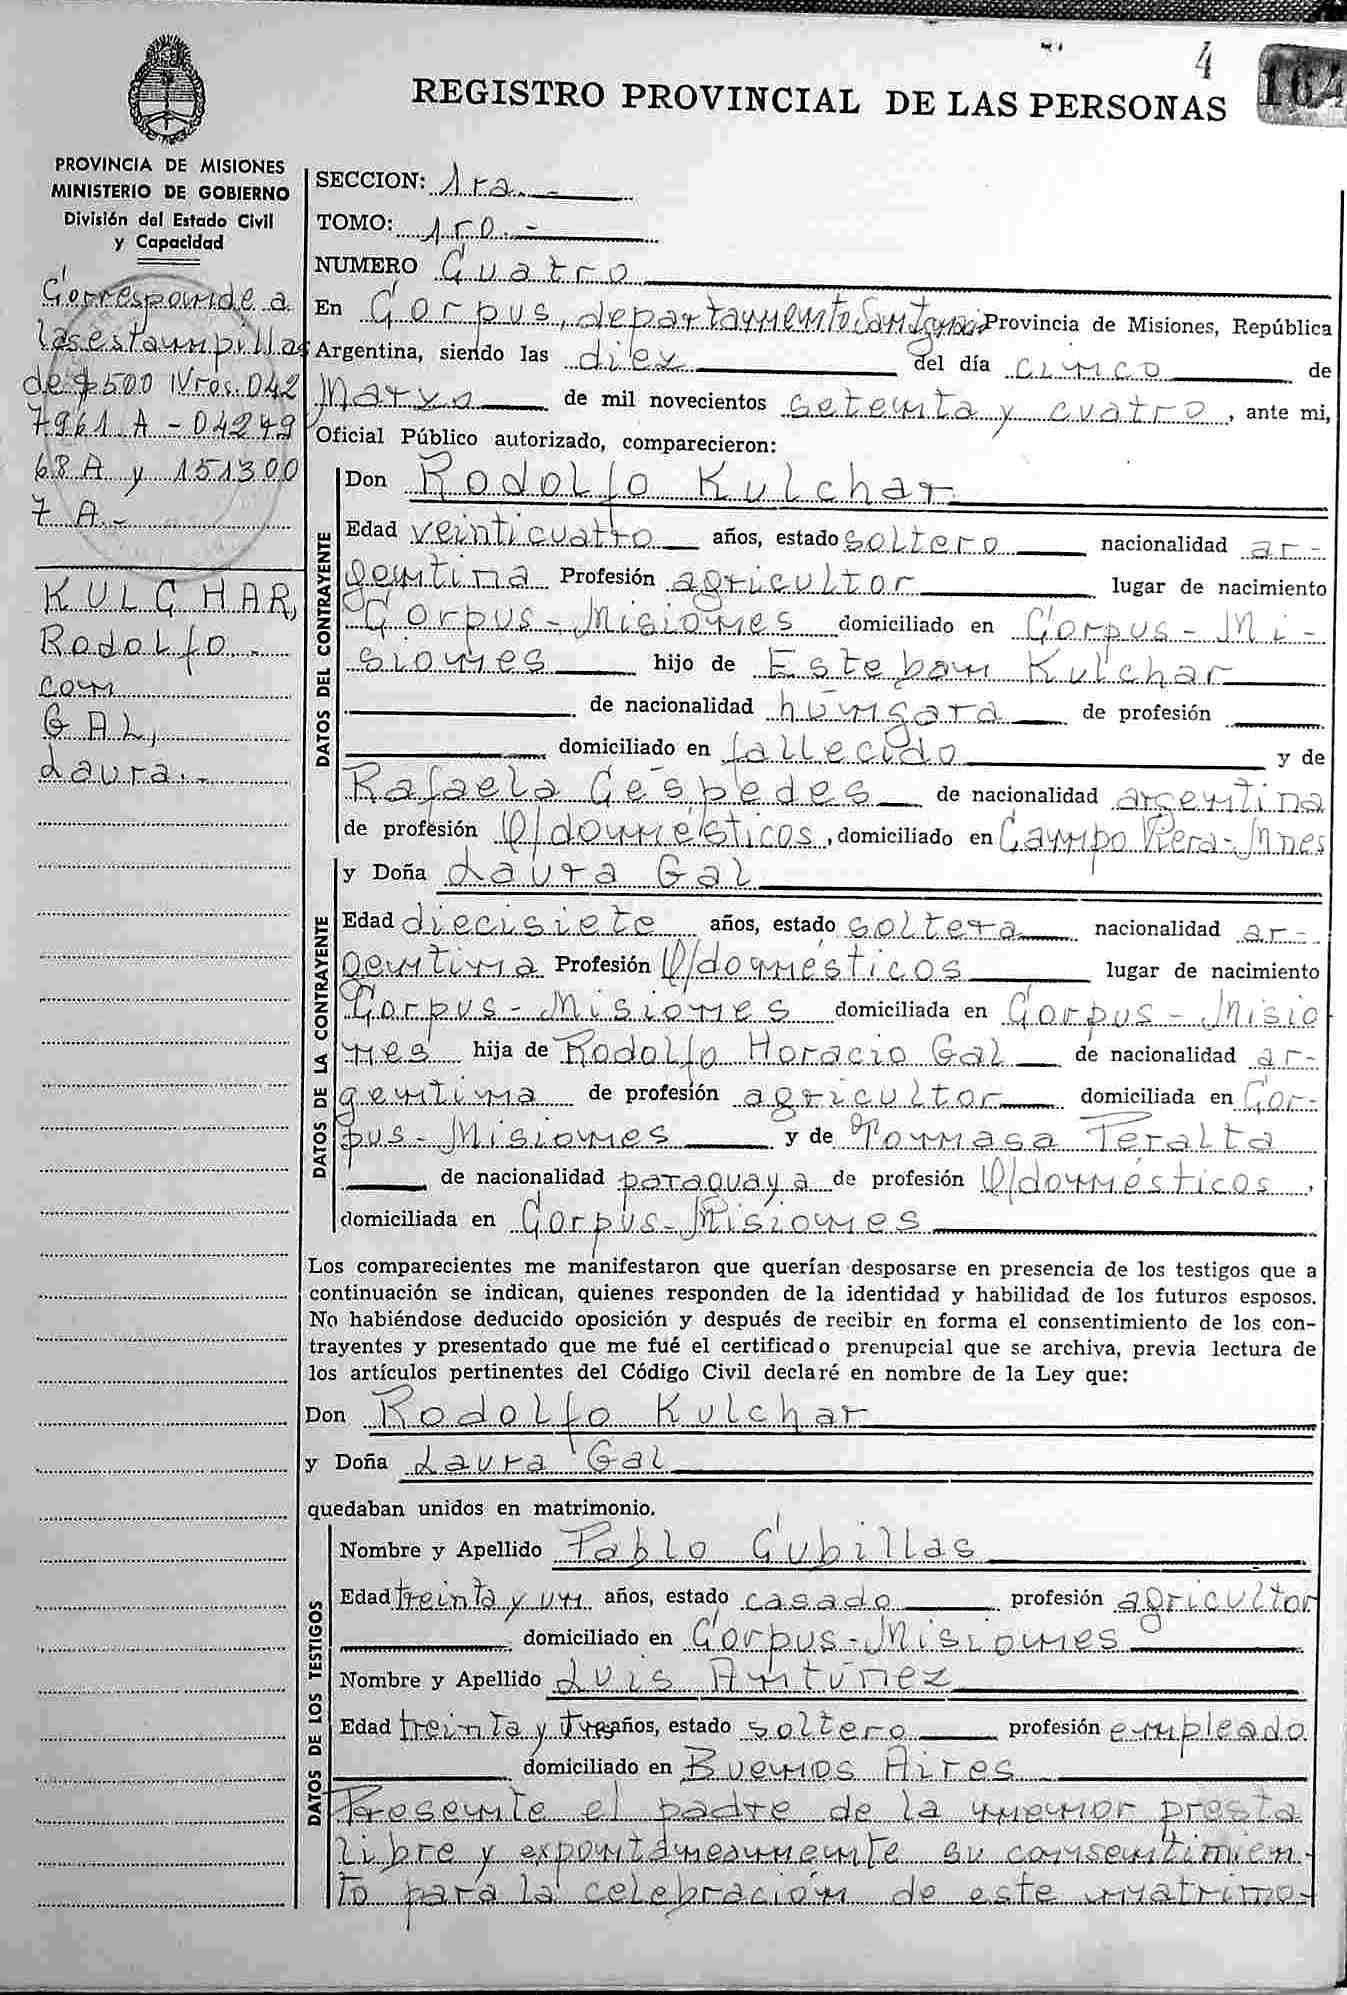 4
164
REGISTRO PROVINCIAL DE LAS PERSONAS
PROVINCIA DE MISIONES
MINISTERIO DE GOBIERNO
División del Estado Civil
y Capacidad
Corresponde a
las estampillas
de $500 Nros. 042
7961 A - 04279
68 A y 151300
7 A.-
KULCHAR,
Rodolfo.-
con
GAL,
Laura.-
SECCION: 1ra.-
TOMO: 1ro.-
NUMERO Cuatro
En Corpus, departamento San Ignacio Provincia de Misiones, República
Argentina, siendo las diez del día cinco de
Marzo de mil novecientos setenta y cuatro, ante mi,
Oficial Público autorizado, comparecieron:
DATOS DEL CONTRAYENTE
Don Rodolfo Kulchar
Edad veinticuatro años, estado soltero nacionalidad ar-
gentina Profesión agricultor lugar de nacimiento
Corpus - Misiones domiciliado en Corpus - Mi-
siones hijo de Esteban Kulchar
de nacionalidad húngara de profesión
domiciliado en fallecido y de
Rafaela Céspedes de nacionalidad argentina
de profesión Q/domésticos, domiciliado en Campo Viera - Mnes
DATOS DE LA CONTRAYENTE
y Doña Laura Gal
Edad diecisiete años, estado soltera nacionalidad ar-
gentina Profesión Q/domésticos lugar de nacimiento
Corpus - Misiones domiciliada en Corpus - Misio
nes hija de Rodolfo Horacio Gal de nacionalidad ar-
gentina de profesión agricultor domiciliada en Cor-
pus - Misiones y de Tomasa Peralta
de nacionalidad paraguaya de profesión Q/domésticos,
domiciliada en Corpus - Misiones
Los comparecientes me manifestaron que querían desposarse en presencia de los testigos que a
continuación se indican, quienes responden de la identidad y habilidad de los futuros esposos.
No habiéndose deducido oposición y después de recibir en forma el consentimiento de los con-
trayentes y presentado que me fué el certificado prenupcial que se archiva, previa lectura de
los artículos pertinentes del Código Civil declaré en nombre de la Ley que:
Don Rodolfo Kulchar
y Doña Laura Gal
quedaban unidos en matrimonio.
DATOS DE LOS TESTIGOS
Nombre y Apellido Pablo Cubillas
Edad treinta y un años, estado casado profesión agricultor
domiciliado en Corpus - Misiones
Nombre y Apellido Luis Antúnez
Edad treinta y tres años, estado soltero profesión empleado
domiciliado en Buenos Aires
Presente el padre de la menor presta
libre y expontáneamente su consentimien-
to para la celebración de este matrimo-